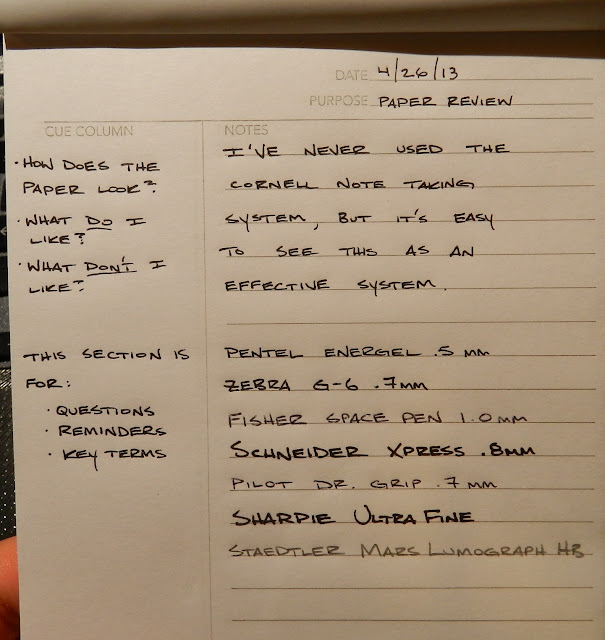 DATE 4/26/13
PURPOSE PAPER REVIEW
CUE COLUMN
· HOW DOES THE
PAPER LOOK?
· WHAT DO I
LIKE?
· WHAT DON'T I
LIKE?
THIS SECTION IS
FOR:
· QUESTIONS
· REMINDERS
· KEY TERMS
NOTES
I'VE NEVER USED THE
CORNELL NOTE TAKING
SYSTEM, BUT IT'S EASY
TO SEE THIS AS AN
EFFECTIVE SYSTEM.
PENTEL ENERGEL .5 MM
ZEBRA G-6 .7MM
FISHER SPACE PEN 1.0 MM
SCHNEIDER XPRESS .8MM
PILOT DR. GRIP .7 MM
SHARPIE ULTRA FINE
STAEDTLER MARS LUMOGRAPH HB